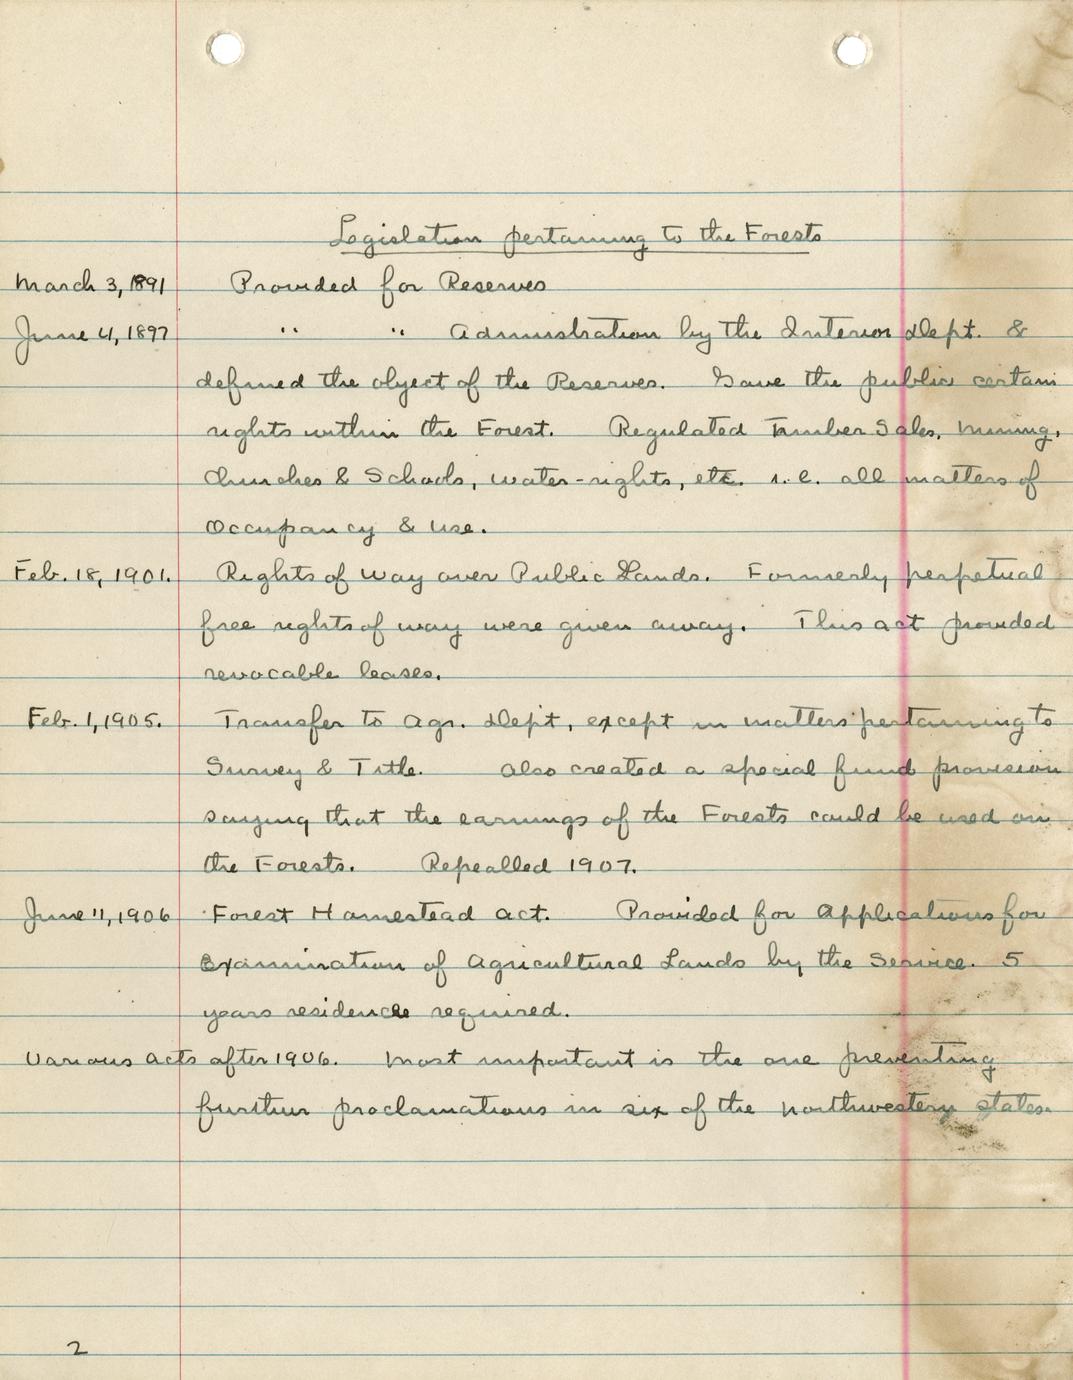 Legislation pertaining to the Forests
March 3, 1891 Provided for Reserves
June 4, 1897 " " Administration by the Interior Dept. &
defined the object of the Reserves. Gave the public certain
rights within the Forest. Regulated Timber Sales, Mining,
Churches & Schools, water-rights, etc. i.e. all matters of
Occupancy & Use.
Feb. 18, 1901. Rights of Way over Public Lands. Formerly perpetual
free rights of way were given away. This act provided
revocable leases.
Feb. 1, 1905. Transfer to Agr. Dept, except in matters pertaining to
Survey & Title. Also created a special fund provision
saying that the earnings of the Forests could be used on
the Forests. Repealled 1907.
June 11, 1906 Forest Homestead Act. Provided for Applications for
Examination of Agricultural Lands by the Service. 5
years residence required.
Various Acts after 1906. Most important is the one preventing
further proclamations in six of the northwestern states.
2